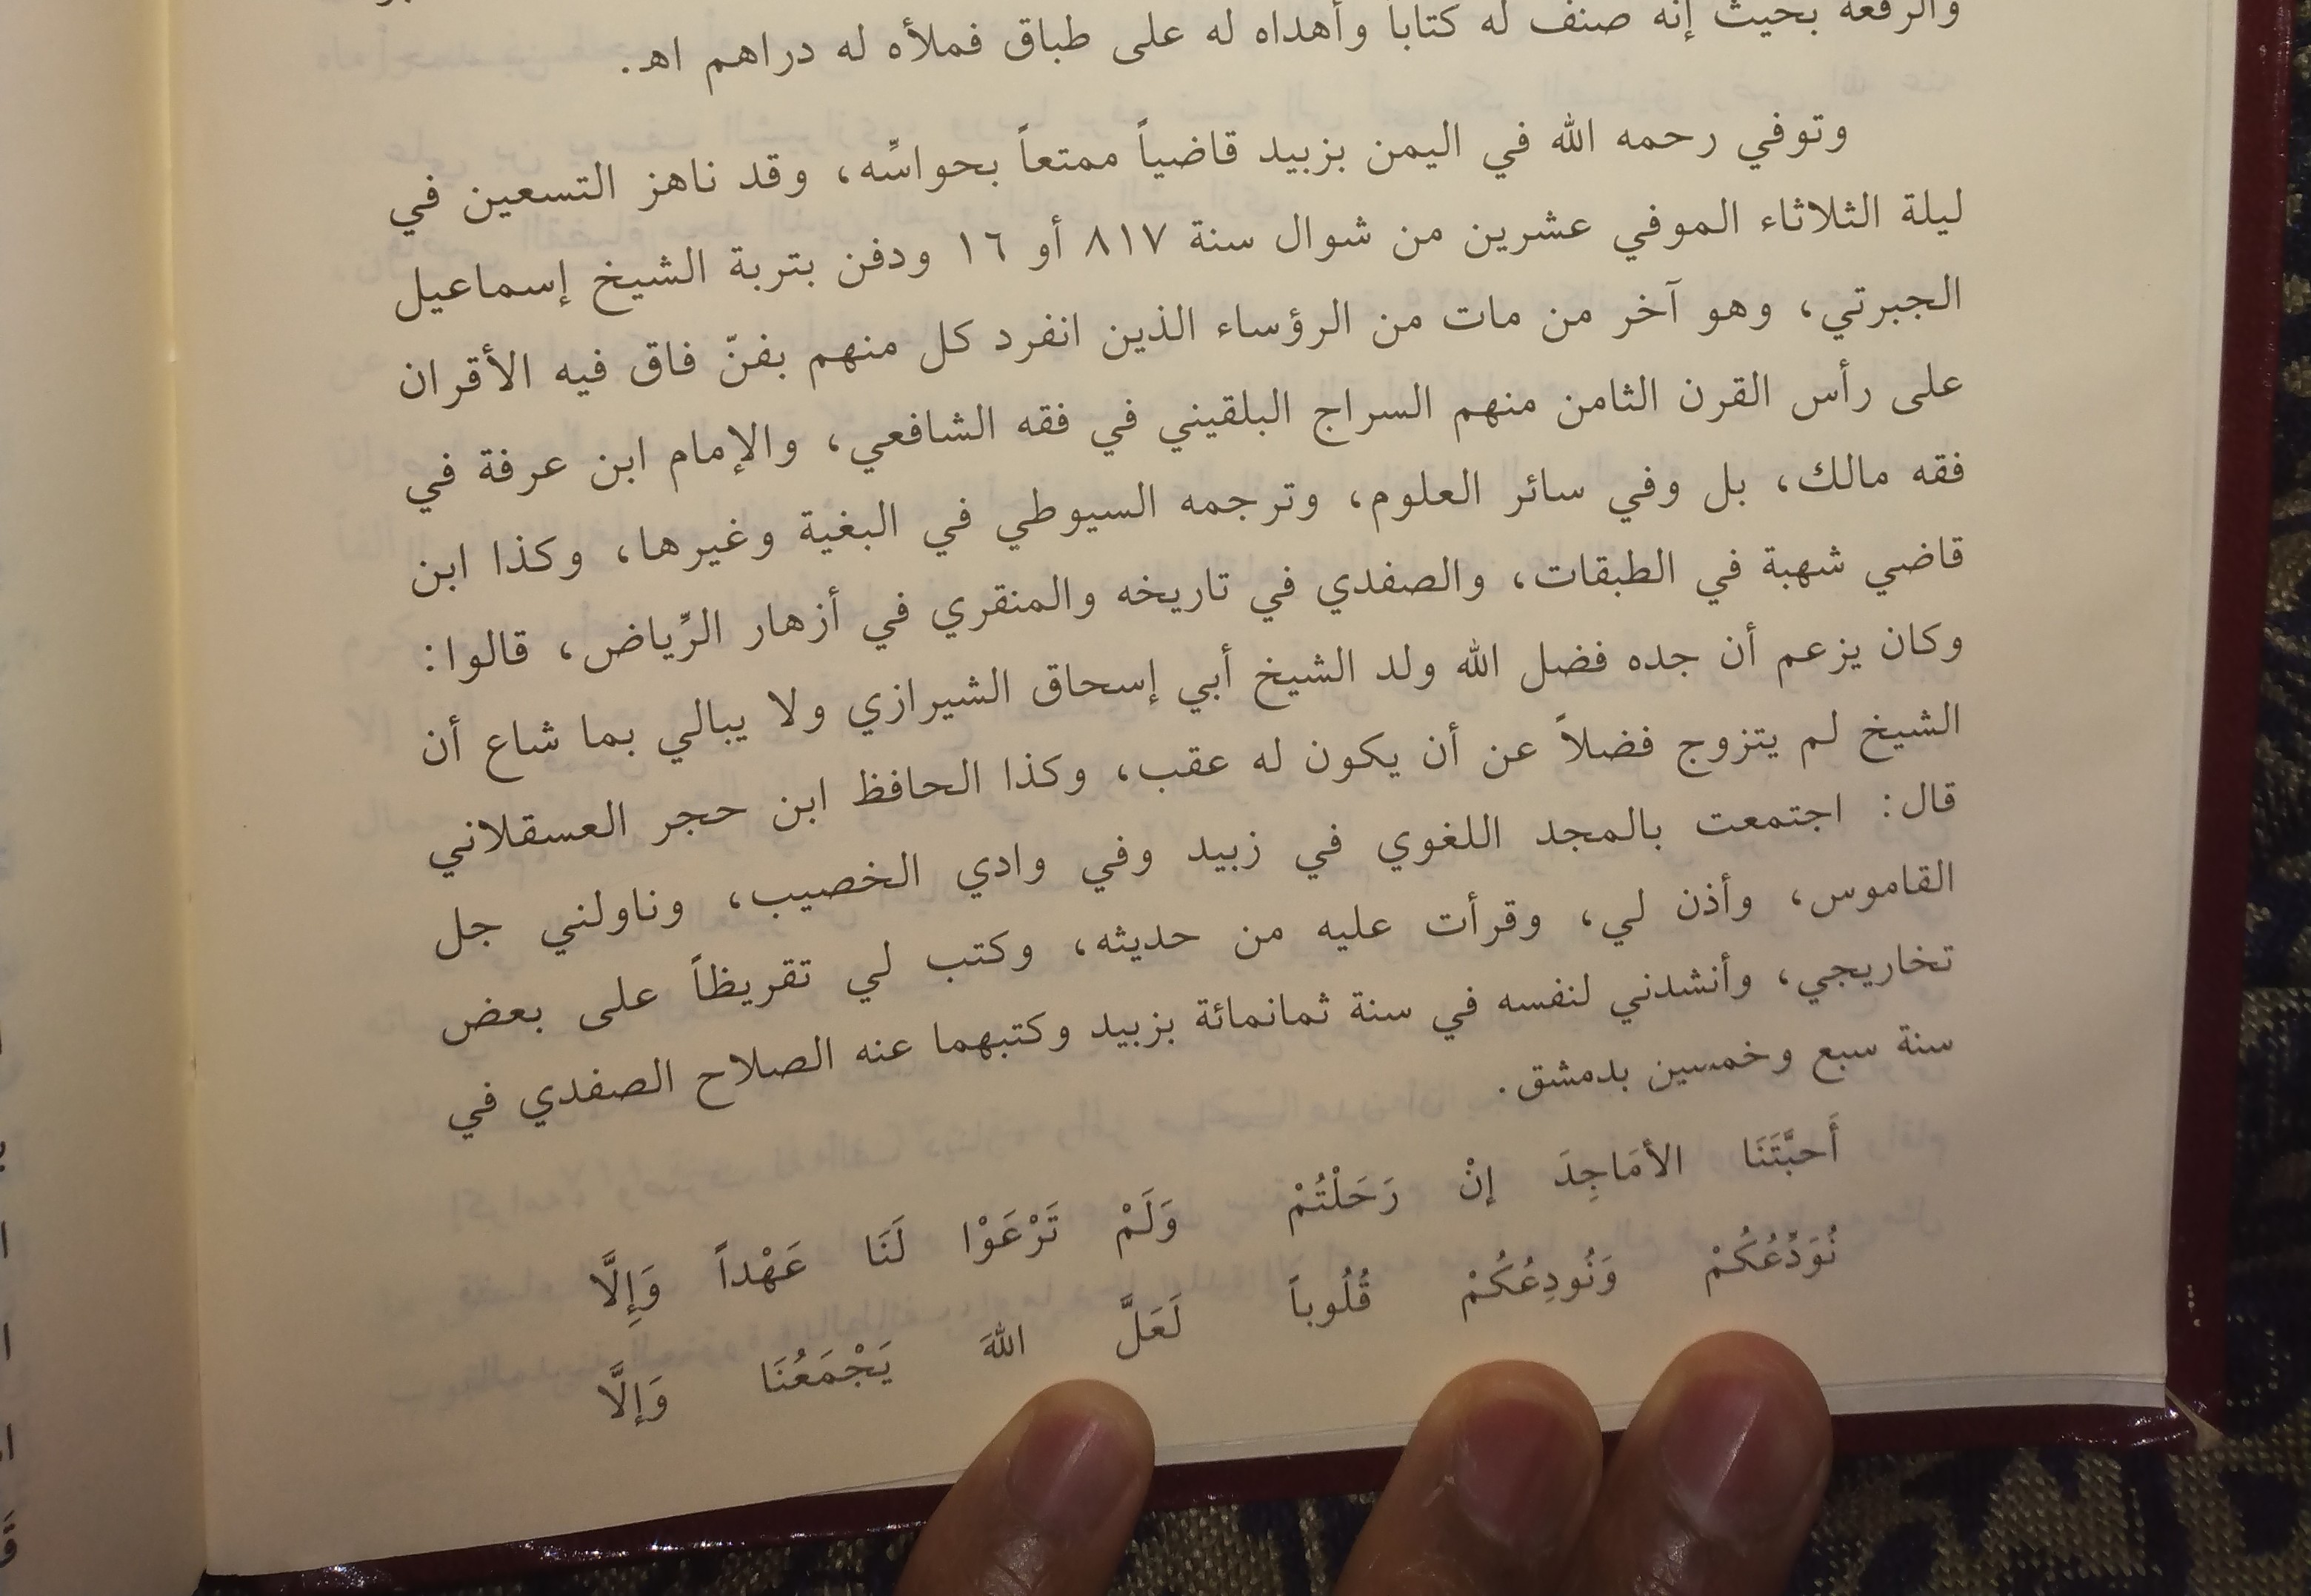 والرفعة بحيث إنه صنف له كتاباً وأهداه له على طباق فملأه له دراهم اهـ.
وتوفي رحمه الله في اليمن بزبيد قاضياً ممتعاً بحواسِّه، وقد ناهز التسعين في
ليلة الثلاثاء الموفي عشرين من شوال سنة ٨١٧ أو ١٦ ودفن بتربة الشيخ إسماعيل
الجبرتي، وهو آخر من مات من الرؤساء الذين انفرد كل منهم بفنّ فاق فيه الأقران
على رأس القرن الثامن منهم السراج البلقيني في فقه الشافعي، والإمام ابن عرفة في
فقه مالك، بل وفي سائر العلوم، وترجمه السيوطي في البغية وغيرها، وكذا ابن
قاضي شهبة في الطبقات، والصفدي في تاريخه والمنقري في أزهار الرِّياض، قالوا:
وكان يزعم أن جده فضل الله ولد الشيخ أبي إسحاق الشيرازي ولا يبالي بما شاع أن
الشيخ لم يتزوج فضلاً عن أن يكون له عقب، وكذا الحافظ ابن حجر العسقلاني
قال: اجتمعت بالمجد اللغوي في زبيد وفي وادي الخصيب، وناولني جل
القاموس، وأذن لي، وقرأت عليه من حديثه، وكتب لي تقريظاً على بعض
تخاريجي، وأنشدني لنفسه في سنة ثمانمائة بزبيد وكتبهما عنه الصلاح الصفدي في
سنة سبع وخمسين بدمشق.
أَحبَّتَنَا الأمَاجِدَ إنْ رَحَلْتُمْ وَلَمْ تَرْعَوْا لَنَا عَهْداً وَإِلَّا
نُوَدِّعُكُمْ وَنُودِعُكُمْ قُلُوباً لَعَلَّ اللهَ يَجْمَعُنَا وَإلَّا